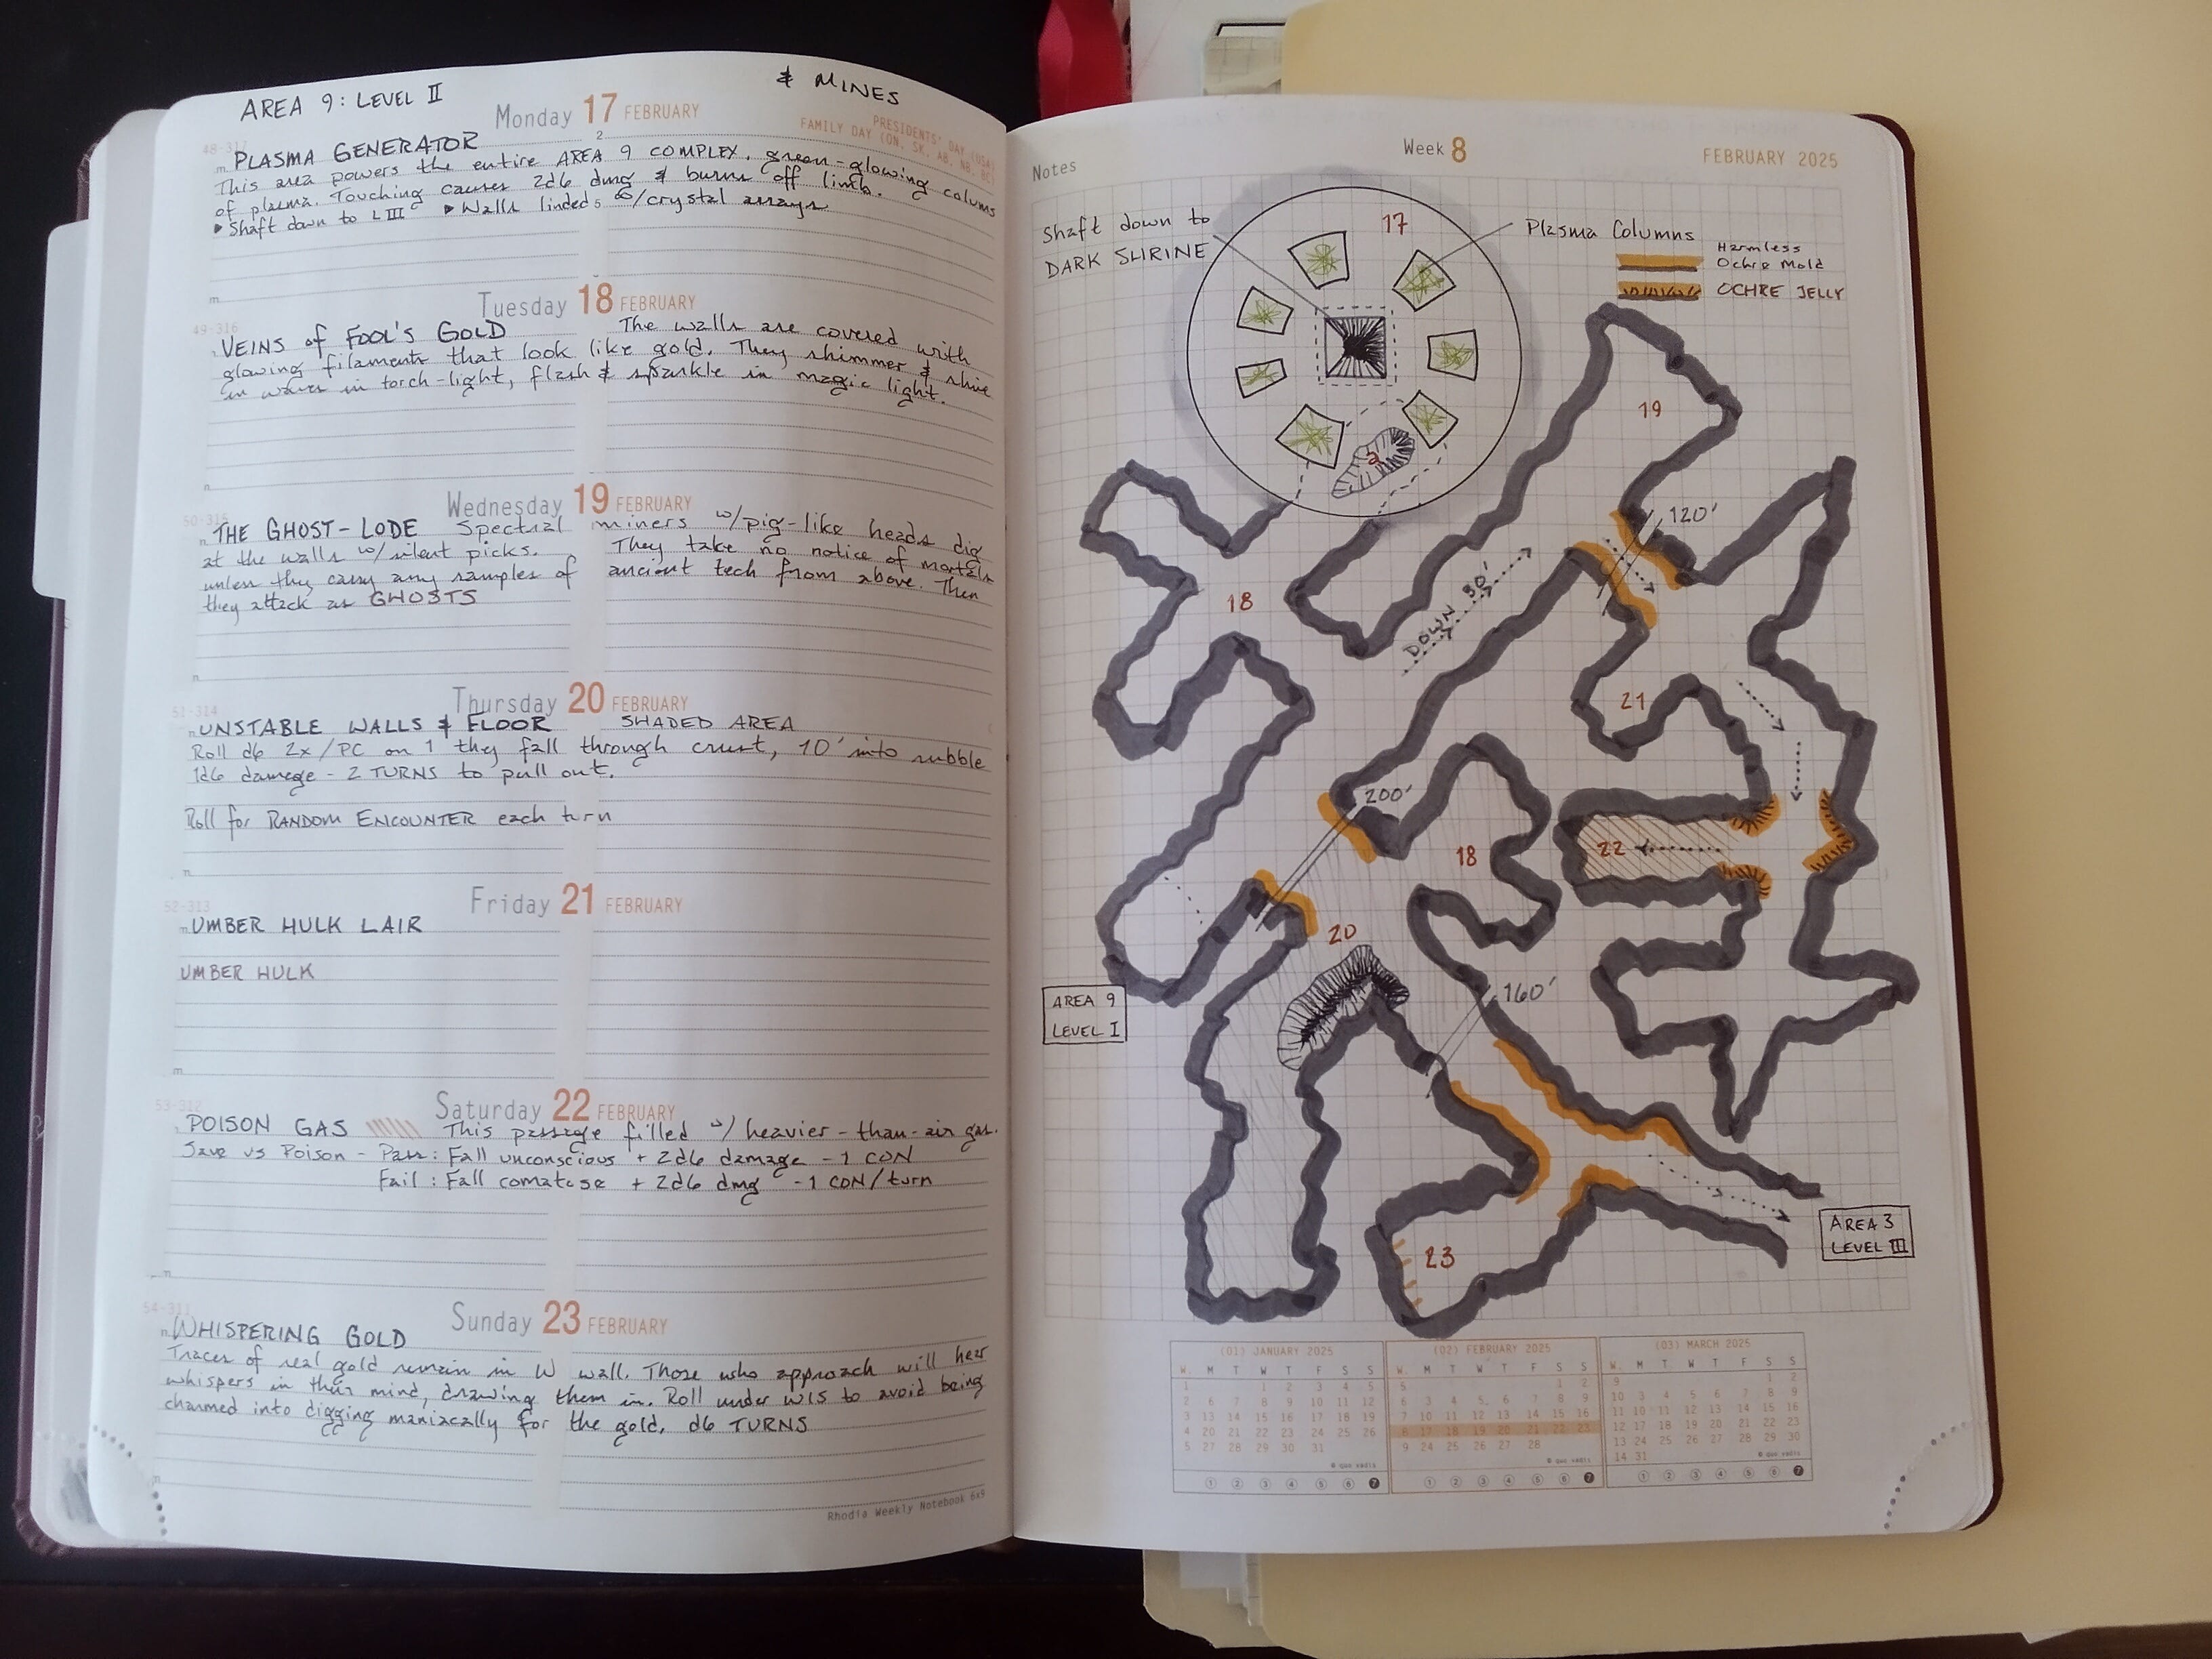 AREA 9: LEVEL II & MINES
Monday 17 FEBRUARY
PRESIDENTS' DAY (USA)
FAMILY DAY (ON, SK, AB, NB, BC)
PLASMA GENERATOR
This area powers the entire AREA 9 COMPLEX. green-glowing colums
of plasma. Touching causes 2d6 dmg & burns off limb.
▸ Shaft down to LIII ▸ Walls linded w/crystal arrays
Tuesday 18 FEBRUARY
49-316
VEINS of FOOL'S GOLD The walls are covered with
glowing filaments that look like gold. They shimmer & shine
in waves in torch-light, flash & sparkle in magic light.
Wednesday 19 FEBRUARY
50-315
THE GHOST-LODE Spectral miners w/pig-like heads dig
at the walls w/silent picks. They take no notice of mortals
unless they carry any samples of ancient tech from above. Then
they attack as GHOSTS
Thursday 20 FEBRUARY
51-314
UNSTABLE WALLS & FLOOR SHADED AREA
Roll d6 2x/PC on 1 they fall through crust, 10' into rubble
1d6 damage - 2 TURNS to pull out.
Roll for RANDOM ENCOUNTER each turn
Friday 21 FEBRUARY
52-313
UMBER HULK LAIR
UMBER HULK
Saturday 22 FEBRUARY
53-312
POISON GAS This passage filled w/ heavier-than-air gas.
Save vs Poison - Pass: Fall unconscious + 2d6 damage -1 CON
Fail: Fall comatose + 2d6 dmg -1 CON/turn
Sunday 23 FEBRUARY
54-311
WHISPERING GOLD
Traces of real gold remain in W wall. Those who approach will hear
whispers in their mind, drawing them in. Roll under WIS to avoid being
charmed into digging maniacally for the gold. d6 TURNS
Rhodia Weekly Notebook 6x9
Notes
Week 8
FEBRUARY 2025
Shaft down to
DARK SHRINE
17
Plasma Columns
Harmless
Ochre Mold
OCHRE JELLY
19
120'
18
DOWN 30'
21
200'
18
22
20
160'
AREA 9
LEVEL I
23
AREA 3
LEVEL III
(01) JANUARY 2025
W. M T W T F S S
1 1 2 3 4 5
2 6 7 8 9 10 11 12
3 13 14 15 16 17 18 19
4 20 21 22 23 24 25 26
5 27 28 29 30 31
© quo vadis
1 2 3 4 5 6 7
(02) FEBRUARY 2025
W. M T W T F S S
5 1 2
6 3 4 5 6 7 8 9
7 10 11 12 13 14 15 16
8 17 18 19 20 21 22 23
9 24 25 26 27 28
© quo vadis
1 2 3 4 5 6 7
(03) MARCH 2025
W. M T W T F S S
9 1 2
10 3 4 5 6 7 8 9
11 10 11 12 13 14 15 16
12 17 18 19 20 21 22 23
13 24 25 26 27 28 29 30
14 31
© quo vadis
1 2 3 4 5 6 7